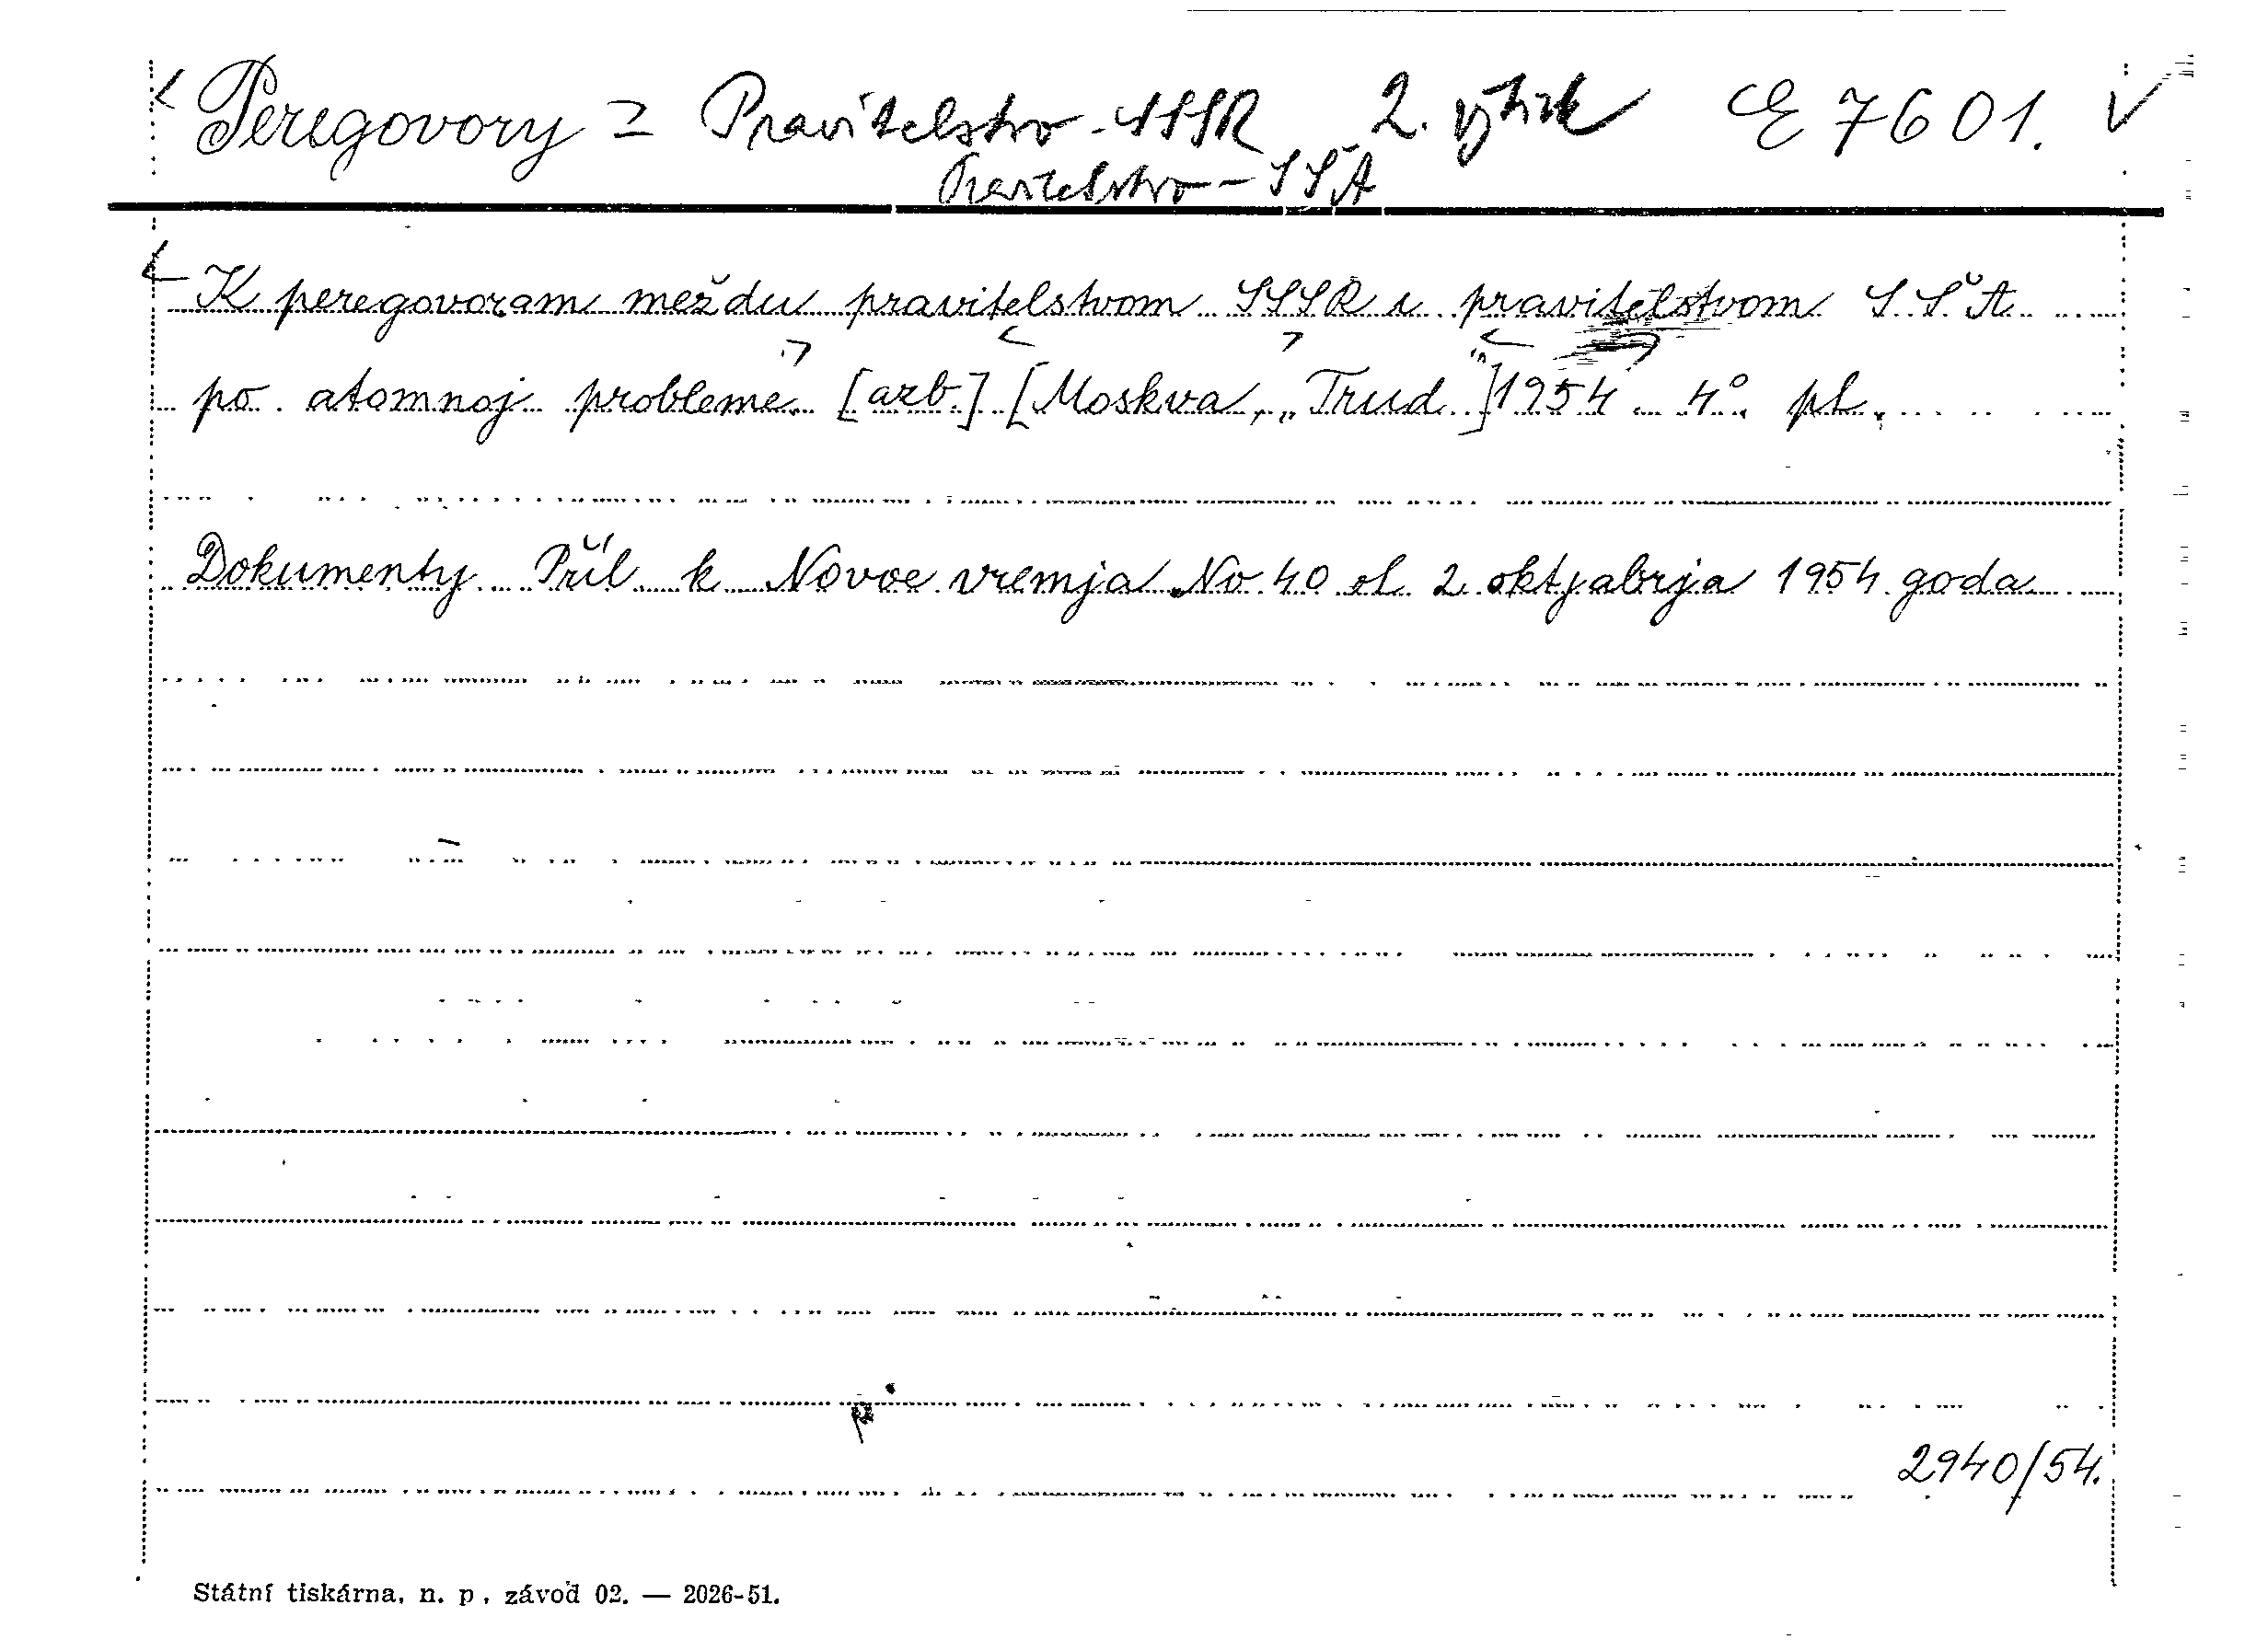 Peregovory = Pravitelstvo - SSSR 2. výtisk E 7601.
Pravitelstvo - SŠA
K peregovoram meždu pravitelstvom SSSR i pravitelstvom SŠA
po atomnoj probleme. [azb.] [Moskva, „Trud"] 1954. 4°. pl.
Dokumenty. Příl. k Novoe vremja No 40 ot 2. oktjabrja 1954 goda.
2940/54.
Státní tiskárna, n. p., závod 02. — 2026-51.